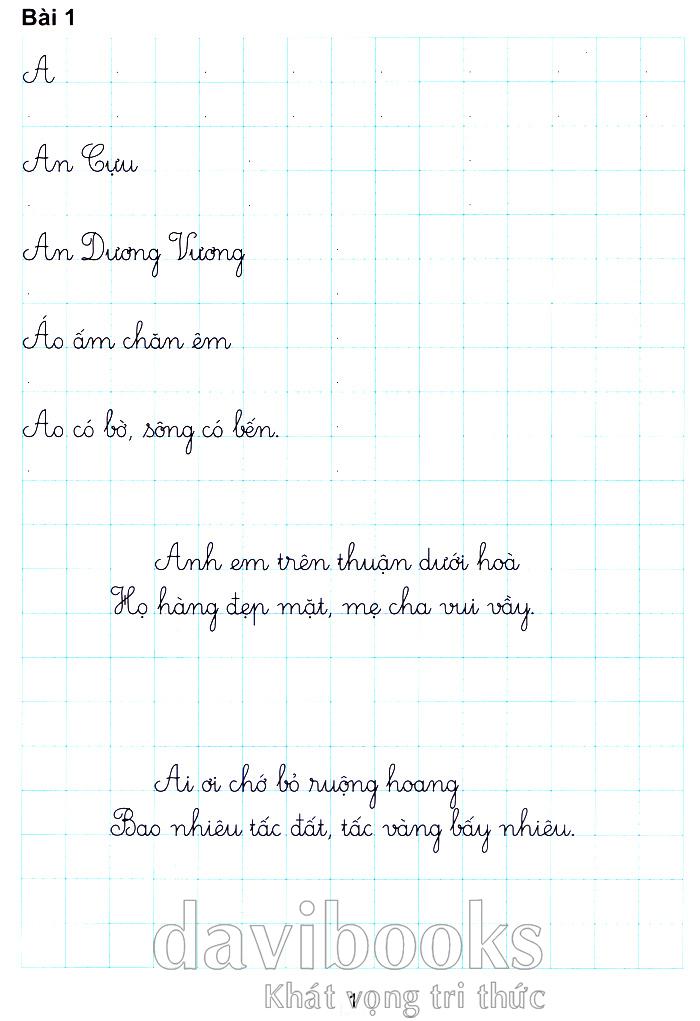 Bài 1
A
An Cựu
An Dương Vương
Áo ấm chăn êm
Ao có bờ, sông có bến.
Anh em trên thuận dưới hoà
Họ hàng đẹp mặt, mẹ cha vui vầy.
Ai ơi chớ bỏ ruộng hoang
Bao nhiêu tấc đất, tấc vàng bấy nhiêu.
davibooks
Khát vọng tri thức
1